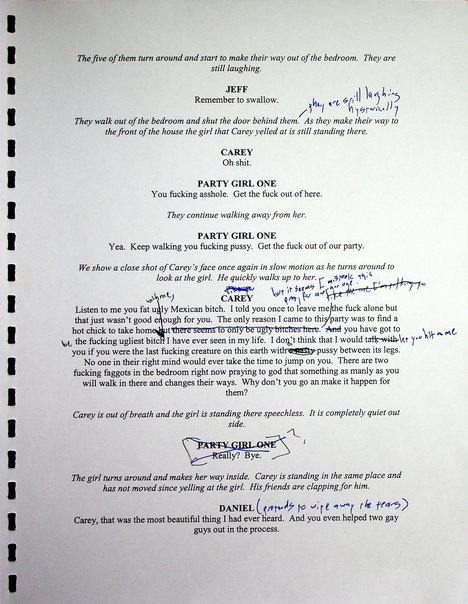 The five of them turn around and start to make their way out of the bedroom. They are
still laughing.
JEFF
Remember to swallow.
they are still laughing
hysterically
They walk out of the bedroom and shut the door behind them. As they make their way to
the front of the house the girl that Carey yelled at is still standing there.
CAREY
Oh shit.
PARTY GIRL ONE
You fucking asshole. Get the fuck out of here.
They continue walking away from her.
PARTY GIRL ONE
Yea. Keep walking you fucking pussy. Get the fuck out of our party.
We show a close shot of Carey's face once again in slow motion as he turns around to
look at the girl. He quickly walks up to her.
but it seems I mistook this
party for another one.
CAREY
with me,
Listen to me you fat ugly Mexican bitch. I told you once to leave me the fuck alone but
that just wasn't good enough for you. The only reason I came to this party was to find a
hot chick to take home but there seems to only be ugly bitches here. And you have got to
be the fucking ugliest bitch I have ever seen in my life. I don't think that I would talk with let you hit on me
you if you were the last fucking creature on this earth with pussy between its legs.
No one in their right mind would ever take the time to jump on you. There are two
fucking faggots in the bedroom right now praying to god that something as manly as you
will walk in there and changes their ways. Why don't you go an make it happen for
them?
Carey is out of breath and the girl is standing there speechless. It is completely quiet out
side.
PARTY GIRL ONE
Really? Bye.
The girl turns around and makes her way inside. Carey is standing in the same place and
has not moved since yelling at the girl. His friends are clapping for him.
DANIEL (pretends to wipe away the tears)
Carey, that was the most beautiful thing I had ever heard. And you even helped two gay
guys out in the process.